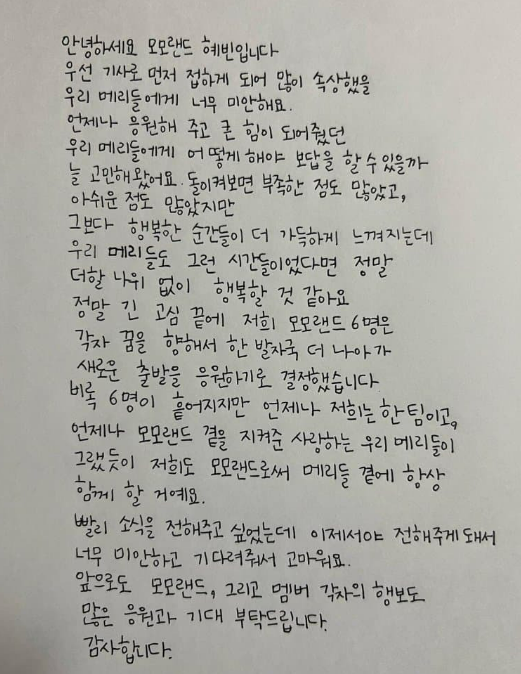 안녕하세요 모모랜드 혜빈입니다
우선 기사로 먼저 접하게 되어 많이 속상했을
우리 메리들에게 너무 미안해요.
언제나 응원해 주고 큰 힘이 되어줬던
우리 메리들에게 어떻게 해야 보답을 할 수 있을까
늘 고민해왔어요. 돌이켜보면 부족한 점도 많았고,
아쉬운 점도 많았지만
그보다 행복한 순간들이 더 가득하게 느껴지는데
우리 메리들도 그런 시간들이었다면 정말
더할 나위 없이 행복할 것 같아요
정말 긴 고심 끝에 저희 모모랜드 6명은
각자 꿈을 향해서 한 발자국 더 나아가
새로운 출발을 응원하기로 결정했습니다
비록 6명이 흩어지지만 언제나 저희는 한 팀이고,
언제나 모모랜드 곁을 지켜준 사랑하는 우리 메리들이
그랬듯이 저희도 모모랜드로써 메리들 곁에 항상
함께 할 거예요.
빨리 소식을 전해주고 싶었는데 이제서야 전해주게 돼서
너무 미안하고 기다려줘서 고마워요.
앞으로도 모모랜드, 그리고 멤버 각자의 행보도
많은 응원과 기대 부탁드립니다.
감사합니다.